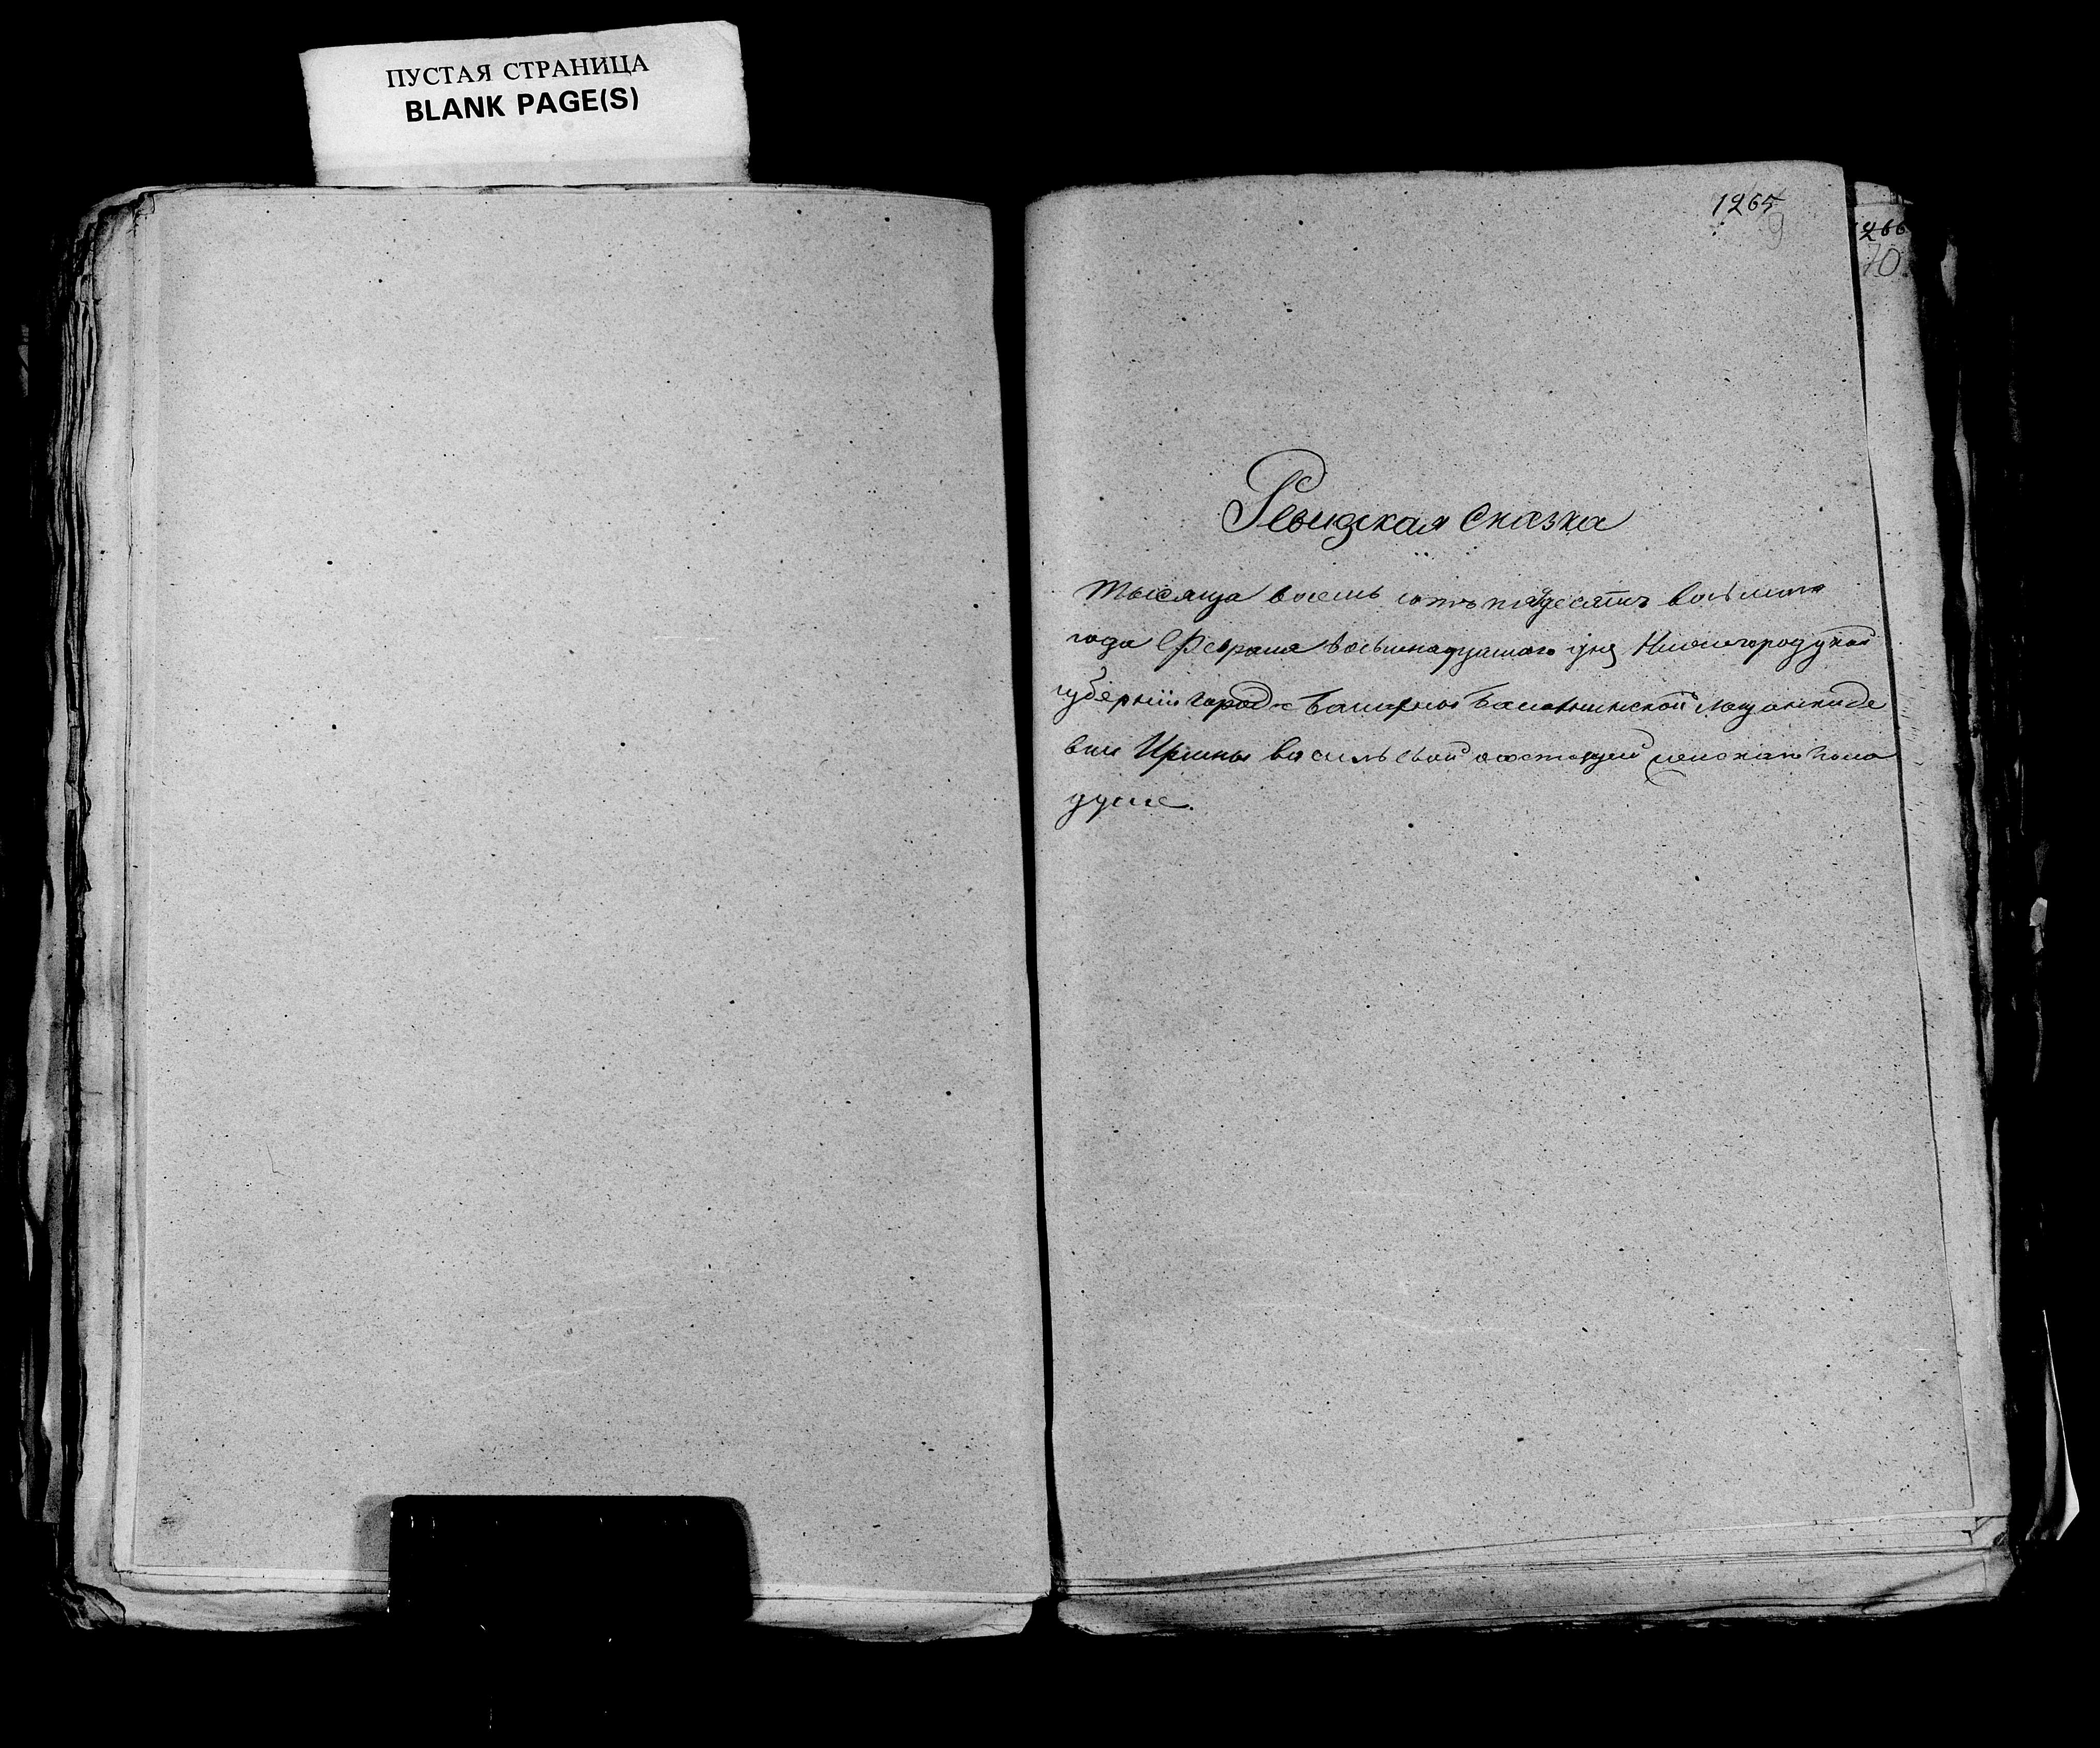 ПУСТАЯ СТРАНИЦА
BLANK PAGE(S)
1265
9
1266
10
Ревидская Сказка
тысяща восемь сотъ пятдесятъ восьмаго
года Февраля восьмнадцатаго дня Нижегородской
губернiи города Балахны Балахнинской мещанки де
вки Ирины васильевой состоящей женскаго пола
душе.